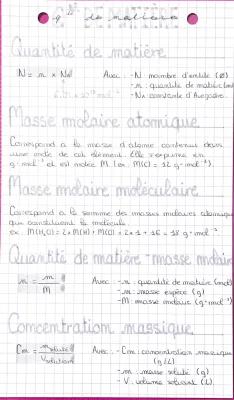 de matière
Quantité de matière
N = n × Na Avec : - N : nombre d'entité (Ø)
- n : quantité de matière (mol)
- Na : constante d'Avogadro
Masse molaire atomique
Correspond à la masse d'atome contenus dans
une mole de cet élément. Elle s'exprime en
g·mol⁻¹ et est notée M (ex : M(C) = 12 g·mol⁻¹).
Masse molaire moléculaire
Correspond à la somme des masses molaires atomiques
que constituent la molécule.
ex : M(H₂O) = 2×M(H) + M(O) = 2×1+16 = 18 g·mol⁻¹
Quantité de matière - masse molaire
n = m / M Avec : - n : quantité de matière (mol)
- m : masse espèce (g)
- M : masse molaire (g·mol⁻¹)
Concentration massique
Cm = m soluté / V solution Avec : - Cm : concentration massique
(g/L)
- m : masse soluté (g)
- V : volume solvant (L)